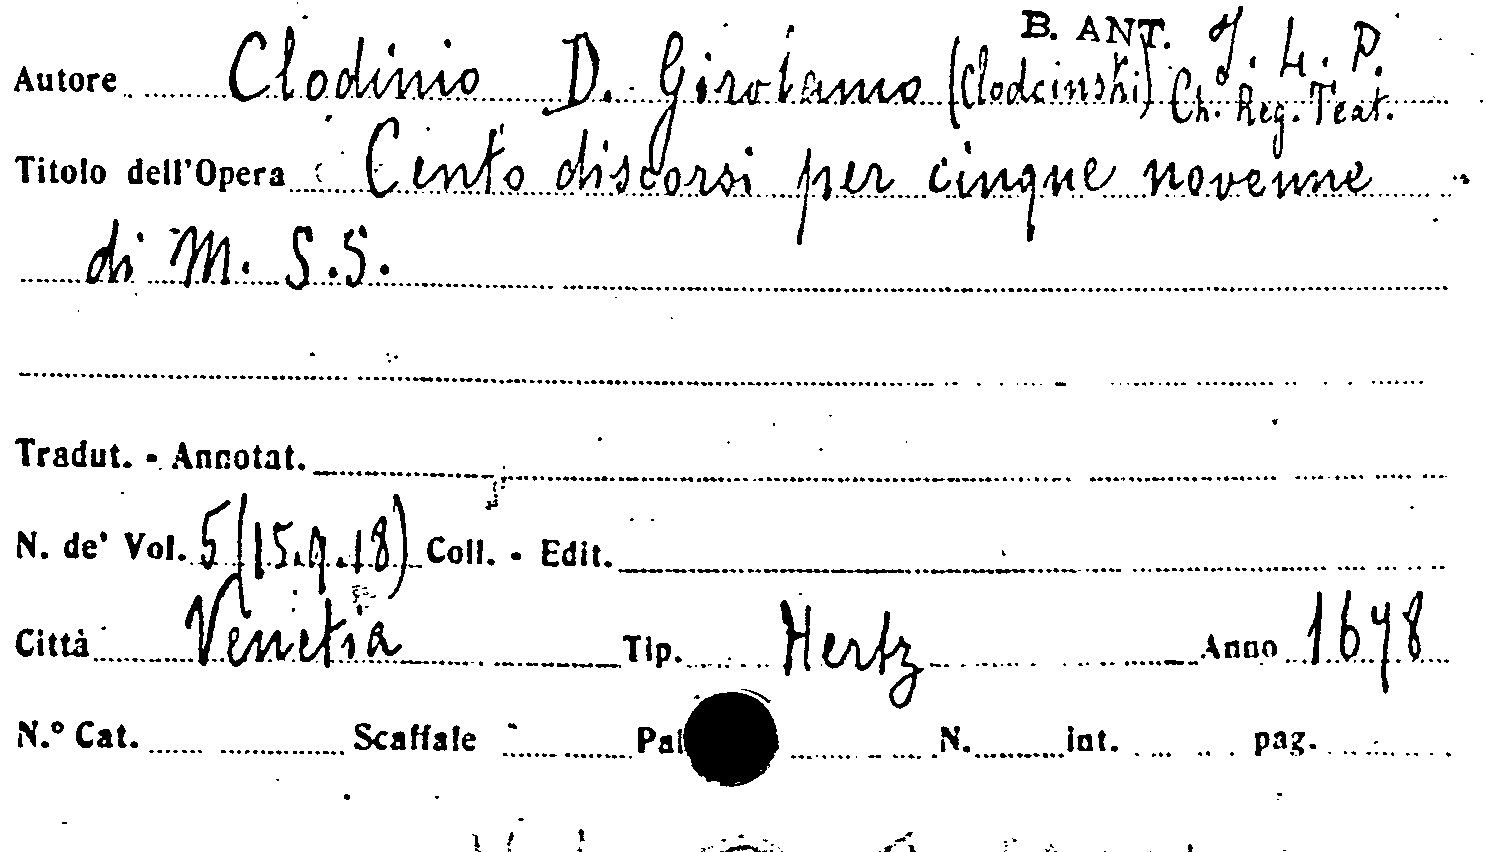 B. ANT. J. L. P.
Autore Clodinio D. Girolamo (Clodcinski) Ch. Reg. Teat.
Titolo dell'Opera Cento discorsi per cinque novenne
di M. S. S.
Tradut. - Annotat.
N. de' Vol. 5 (15.9.18) Coll. - Edit.
Città Venetia Tip. Hertz Anno 1678
N.º Cat. Scaffale Pal N. int. pag.